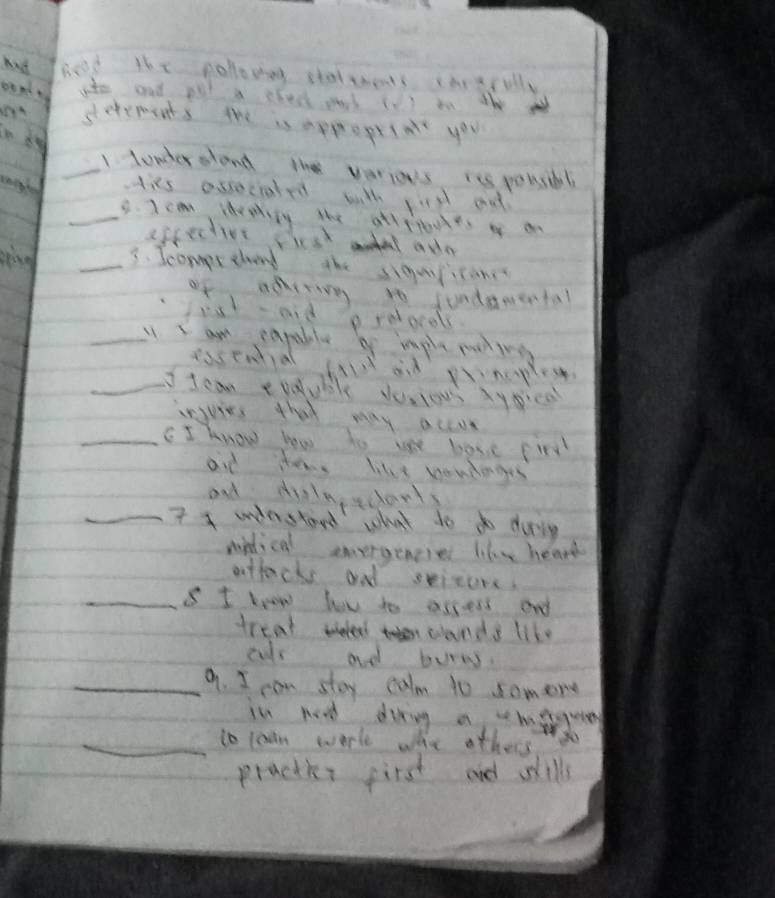 Read the following statements carefully
and put a check mark (✓) on the
statements the is appropriate you.
___ 1. I understand the various responsibili
-ties associated with first aid.
___ 2. I can identify the attributes of an
effective first aider
___ 3. I comprehend the significance
of adhering to fundamental
first-aid protocols.
___ 4 I am capable of implementing
essential first aid principles.
___ 5 I can evaluate various typical
injuries that may occur
___ 6 I know how to use basic first
aid items like bandages
and disinfectants
___ 7 I understand what to do during
medical emergencies like heart
attacks and seizure.
___ 8 I know how to assess and
treat wounds like
cuts and burns.
___ 9. I can stay calm to someone
in need during a
___ 10 I can work with others to
practice first aid skills
and